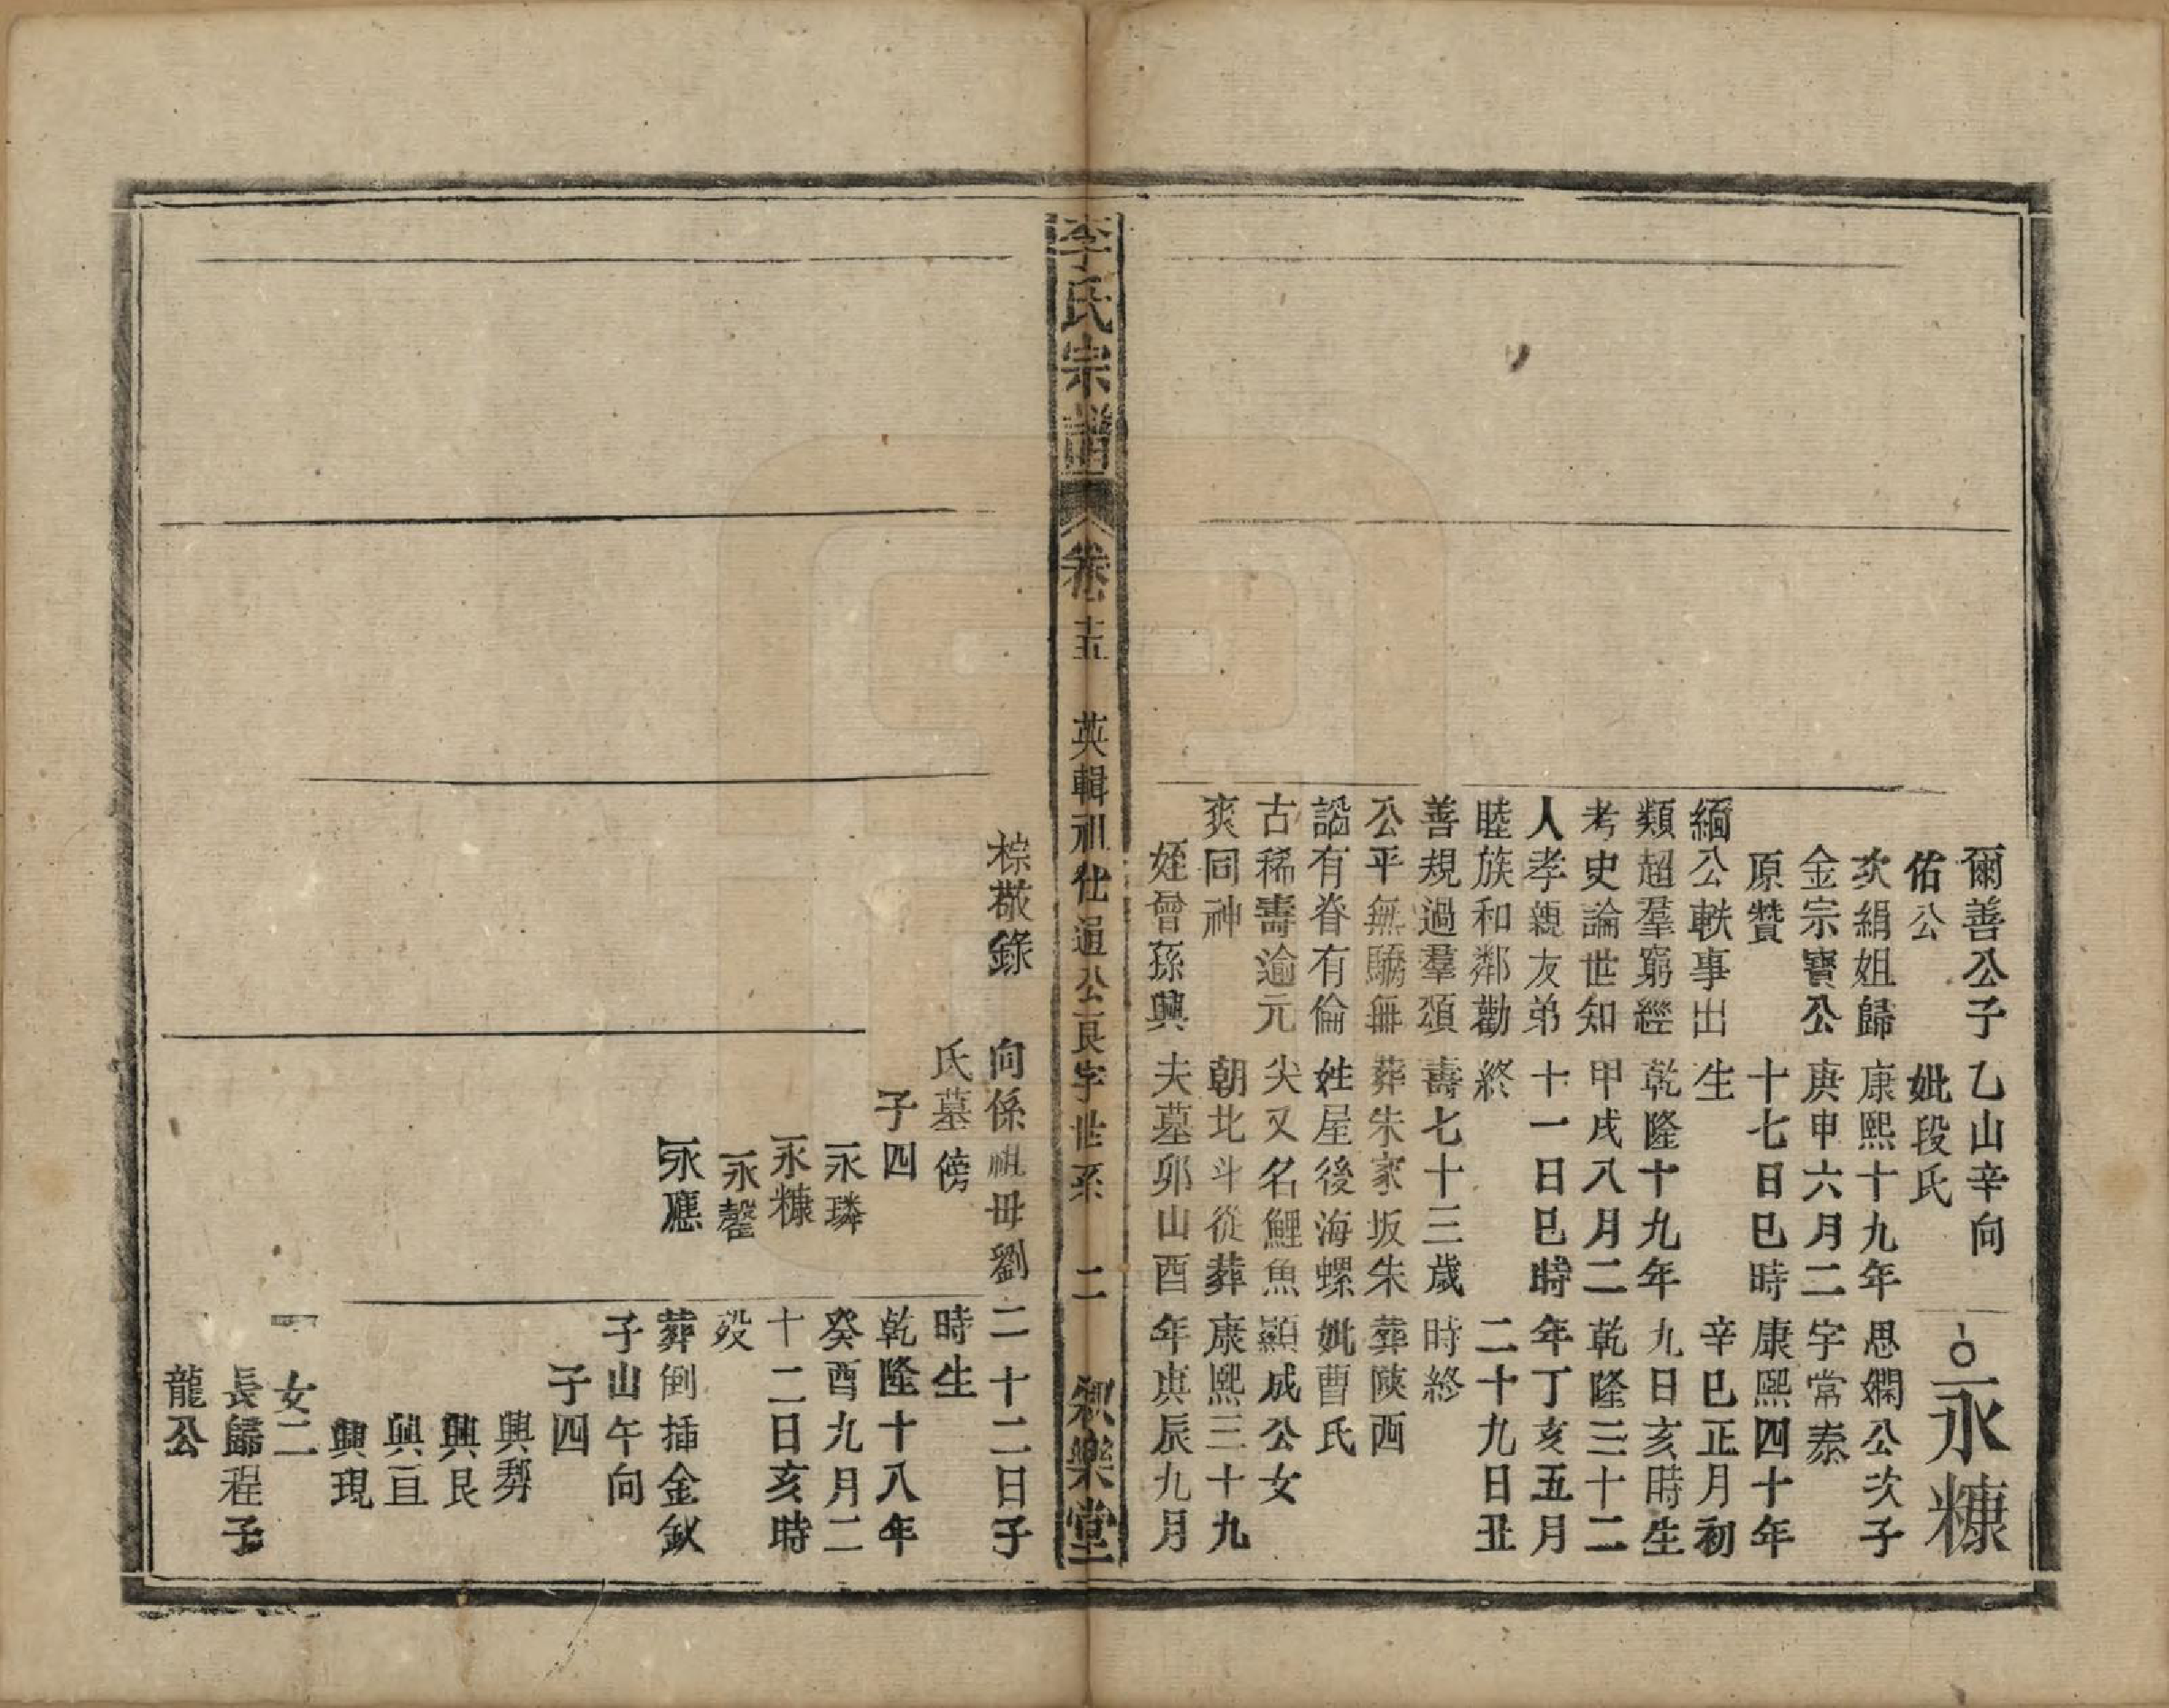 爾善公子
佑公
次絹姐歸
金宗寶公
原贊
緬公軼事出
類超羣窮經
考史論世知
人孝親友弟
睦族和鄰勸
善規過羣頌
公平無驕無
謟有脊有倫
古稀壽逾元
爽同神
姪曾孫興
棕敬錄
乙山辛向
妣段氏
康熙十九年
庚申六月二
十七日巳時
生
乾隆十九年
甲戌八月二
十一日巳時
終
壽七十三歲
葬朱家坂朱
姓屋後海螺
尖又名鯉魚
朝北斗從葬
夫墓卯山酉
向係祖母劉
氏墓傍
子四
永璘
永糠
永馨
永應
永糠
思嫻公次子
字常泰
康熙四十年
辛巳正月初
九日亥時生
乾隆三十二
年丁亥五月
二十九日丑
時終
葬陝西
妣曹氏
顯成公女
康熙三十九
年庚辰九月
二十二日子
時生
乾隆十八年
癸酉九月二
十二日亥時
歿
葬倒插金釵
子山午向
子四
興
興艮
興亘
興現
女二
長歸程子
龍公
李氏宗譜
卷十五
英輯祖仕通公良字世系
二
和樂堂